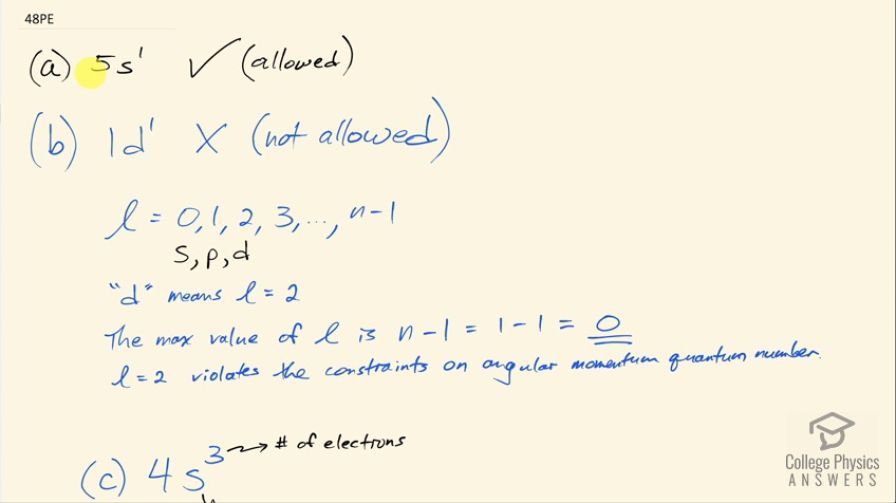 48PE
(a) 5s¹ ✓ (allowed)
(b) 1d¹ X (not allowed)
l = 0, 1, 2, 3, ..., n-1
s, p, d
"d" means l = 2
The max value of l is n - 1 = 1 - 1 = 0
l = 2 violates the constraints on angular momentum quantum number.
(c) 4s³ → # of electrons
College Physics
ANSWERS